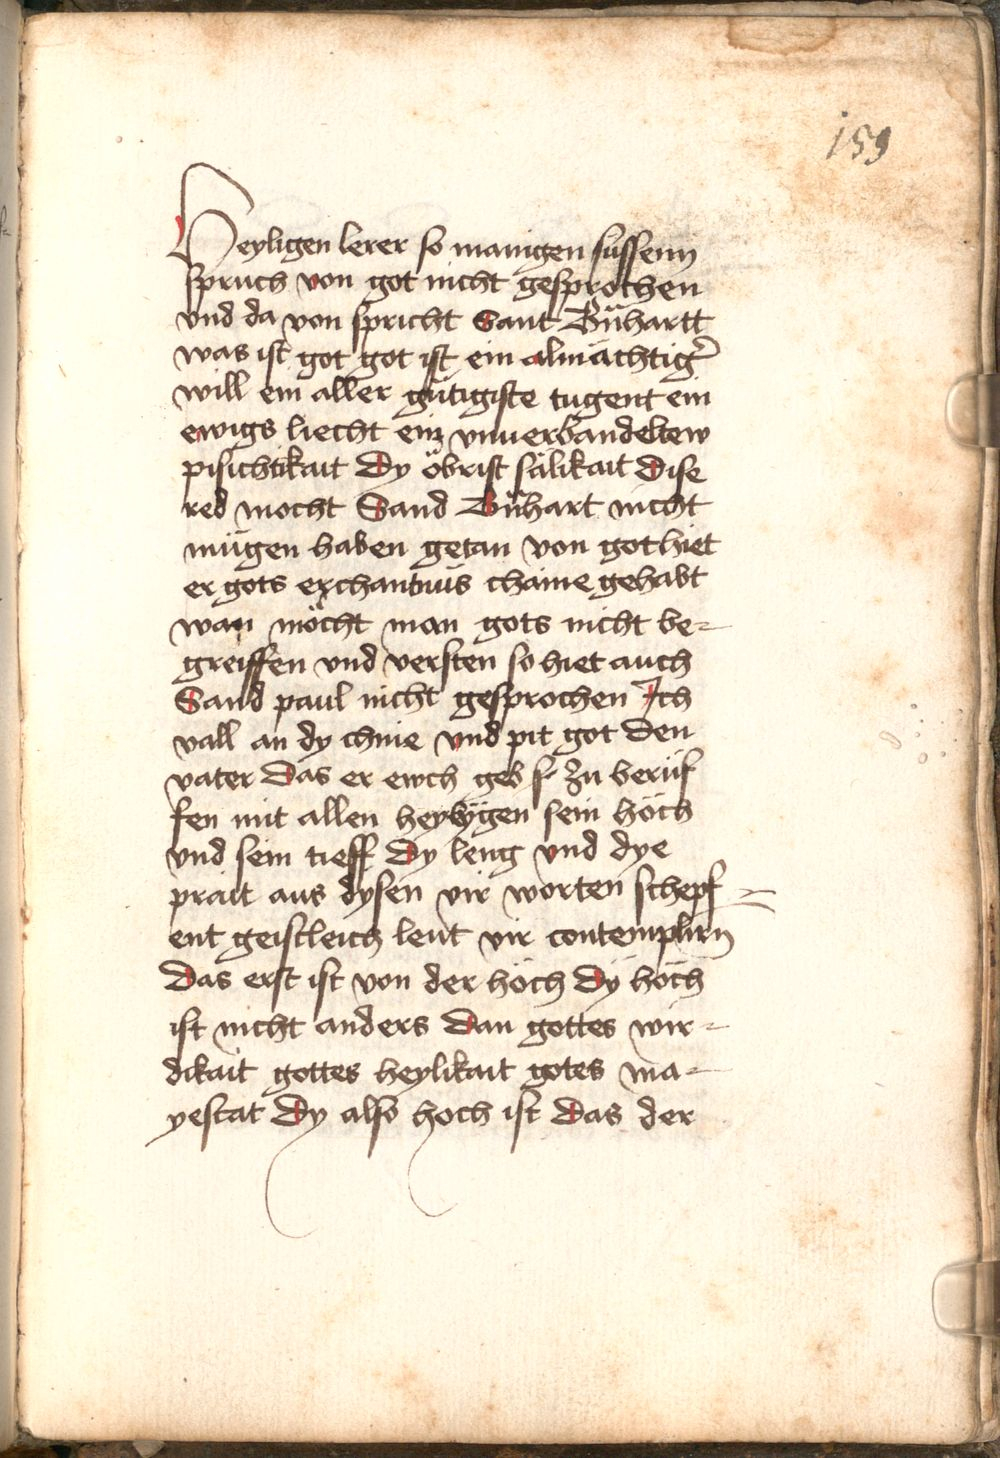 159
Heyligen lerer so manigen süssenn
spruch von got nicht gesprochen
vnd da von spricht Sant Bn̄hartt
was ist got got ist ein almächtigr̄
will ein aller gütigiste tugent ein
ewigs liecht ein vnuerbandeltew
pisichtikait Dy öbrist sälikait Dise
red mocht Sand Bn̄hart nicht
mügen haben getan von got hiet
er gots erchantnüs chaine gehabt
wan möcht man gots nicht be-
greiffen vnd versten so hiet auch
Sand paul nicht gesprochen Ich
vall an dy chnie vnd pit got den
vater Das er ewch geb zu berüf
fen mit allen heyligen sein höch
vnd sein tieff Dy leng vnd dye
prait aus dysen vir worten schepf=
ent geistleich leut vir contemplirn
Das erst ist von der höch Dÿ höch
ist nicht anders Dan gottes wir-
dikait gottes heylikait gotes ma-
yestat Dy also hoch ist Das der